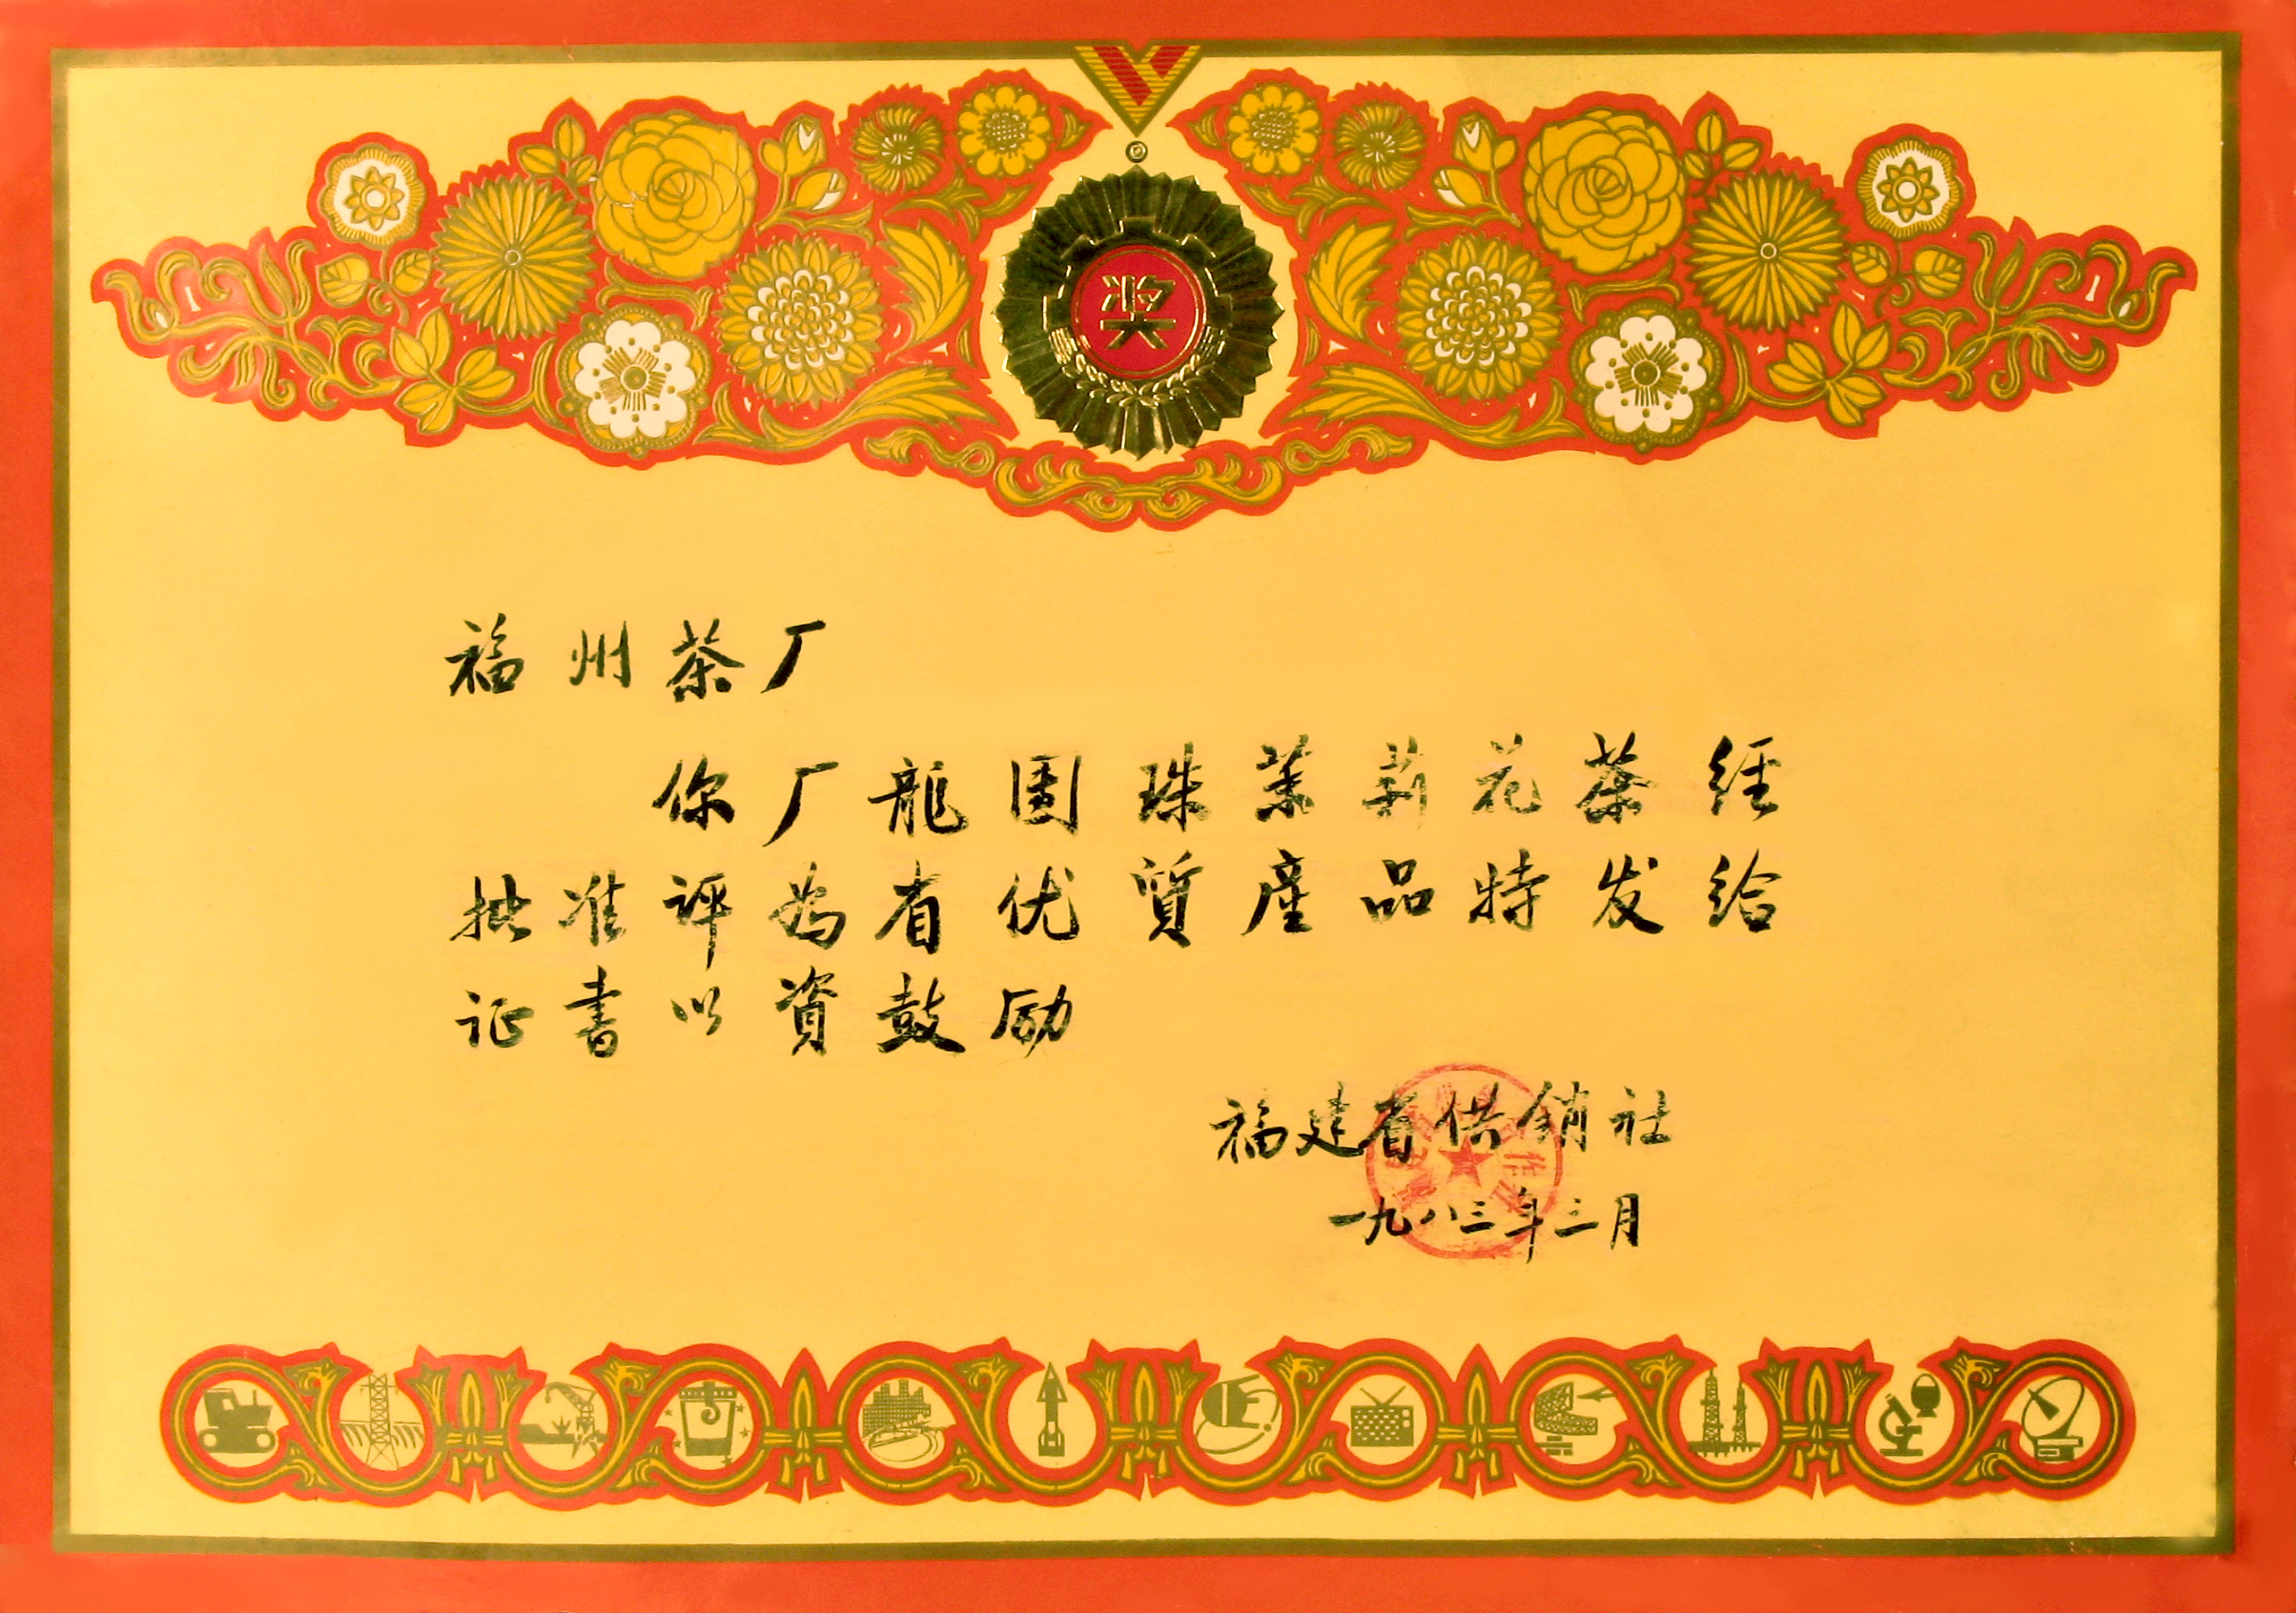 奖
福州茶厂
你厂龍团珠茉莉花茶经
批准评为省优質產品特发给
证書以資鼓励
福建省供銷社
一九八三年三月